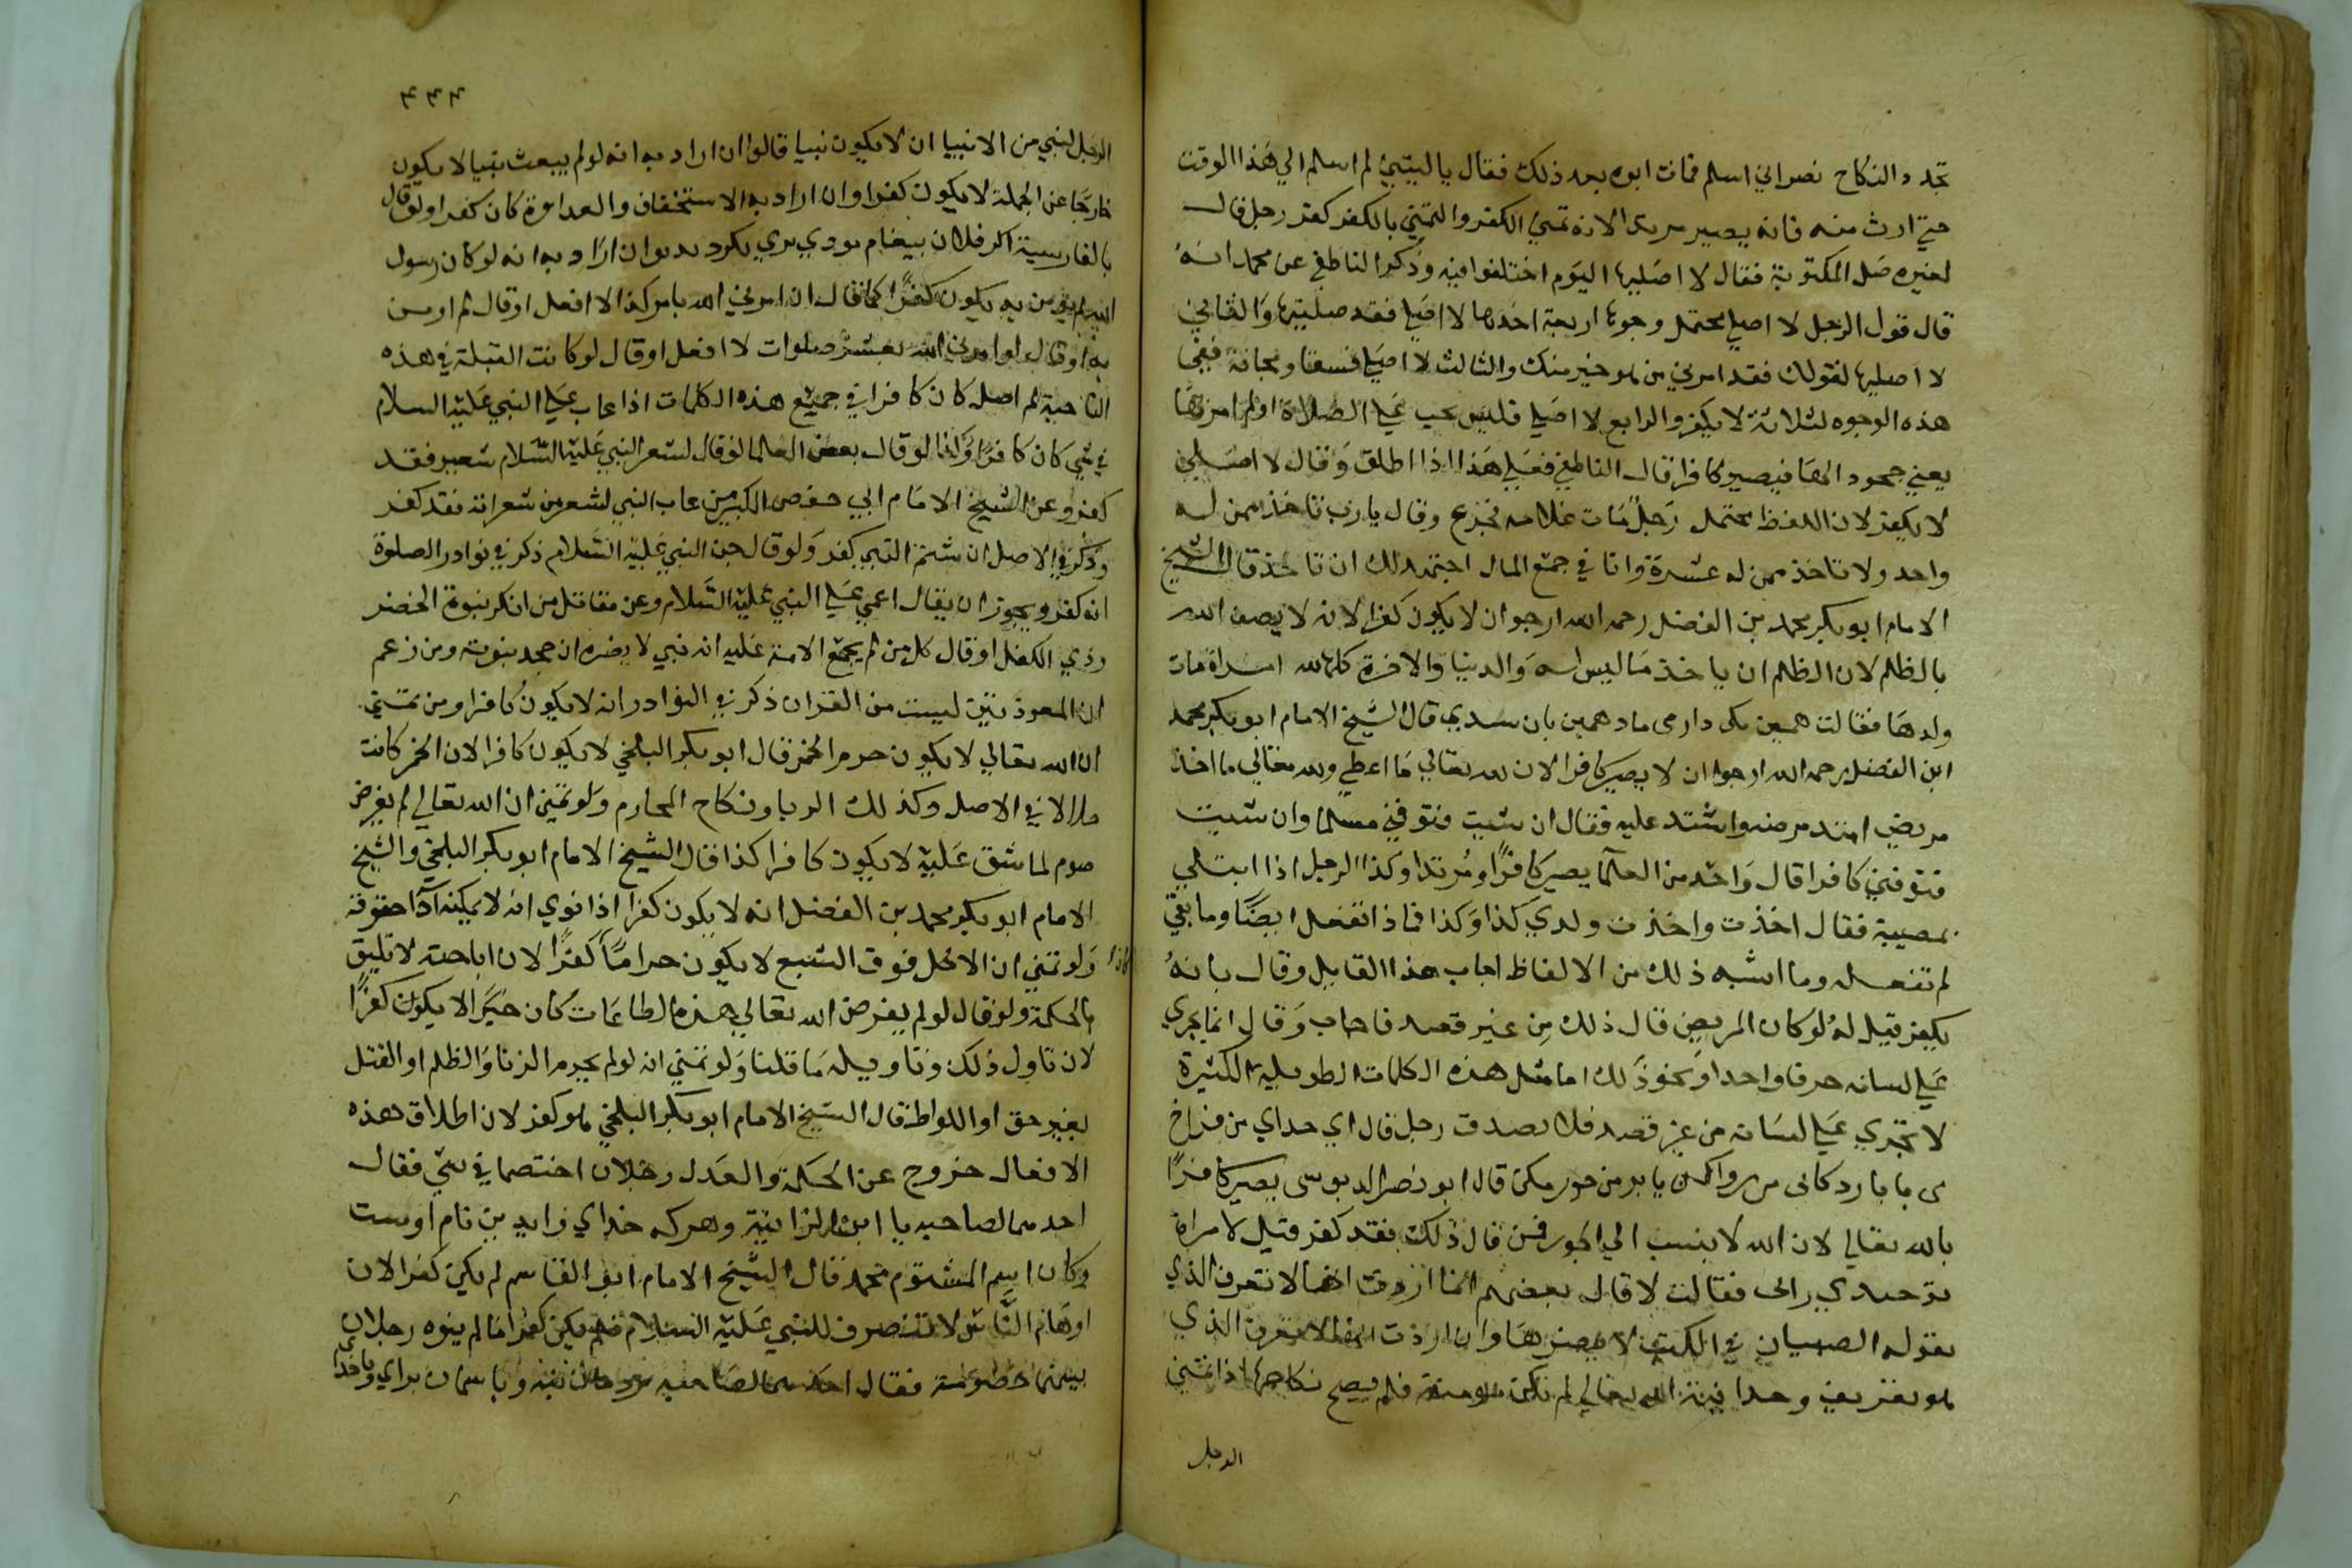 تجدد النكاح نصراني اسلم فمات ابوه بعد ذلك فقال يا ليتني لم اسلم الي هذا الوقت
حتي ارث منه فانه يصير مرتدا لانه تمني الكفر والتمني بالكفر كفر رجل قال
لغيره صل المكتوبة فقال لا اصليها اليوم اختلفوا فيه وذكر الناطفي عن محمد انه
قال قول الرجل لا اصلي يحتمل وجوها اربعة احدها لا اصلي فقد صليتها والثاني
لا اصليها لقولك فقد امرني من هو خير منك والثالث لا اصلي فسقا ومجانة ففي
هذه الوجوه لثلاثة لا يكفر والرابع لا اصلي فليس يجب علي الصلاة او لم اومر بها
يعني جحود الها فيصير كافرا قال الناطفي فعلي هذا اذا اطلق وقال لا اصلي
لا يكفر لان اللفظ محتمل رجل مات غلامه فجزع وقال يا رب تاخذ ممن له
واحد ولا تاخذ ممن له عشرة وانا في جمع المال اجتهد لك ان تاخذ قال الشيخ
الامام ابو بكر محمد بن الفضل رحمه الله ارجو ان لا يكون كفرا لانه لا يصف الله
بالظلم لان الظلم ان ياخذ ما ليس له والدنيا والاخرة كلها لله امراة مات
ولدها فقالت همين يكى دارمى ماد همين بان سدي قال الشيخ الامام ابو بكر محمد
ابن الفضل رحمه الله ارجو ان لا يصير كافرا لان لله تعالي ما اعطي ولله تعالي ما اخذ
مريض امتد مرضه واشتد عليه فقال ان شيت فتوفني مسلما وان شيت
فتوفني كافرا قال واحد من العلما يصير كافرا ومرتدا وكذا الرجل اذا ابتلي
بمصيبة فقال اخذت واخذت ولدي كذا وكذا فماذا تفعل ايضا وما بقي
لم تفعله وما اشبه ذلك من الالفاظ اجاب هذا القايل وقال بانه
يكفر قيل له لو كان المريض قال ذلك من غير قصد فاجاب وقال انما يجري
علي لسانه حرفا واحدا ونحو ذلك اما مثل هذه الكلمات الطويلة الكثيرة
لا تجري علي لسانه من غير قصد فلا يصدق رجل قال اي خداي من فراخ
يا بر من جور مكن قال ابو نصر الدبوسي يصير كافرا
بالله تعالي لان الله لا ينسب الي الجور فمن قال ذلك فقد كفر قيل لامراة
توحيدي دانى فقالت لا قال بعضهم انها ارادت انها لا تعرف الذي
يقوله الصبيان في المكتب لا يضرها وان ارادت انها لا تعرف الذي
هو تعريف وحدانية الله تعالي لم تكن مومنة فلم يصح نكاحها اذا تمني
الرجل
٤٤٤
الرجل لنبي من الانبيا ان لا يكون نبيا قالوا ان اراد به انه لو لم يبعث نبيا لا يكون
خارجا عن الحكمة لا يكون كفرا وان اراد به الاستخفاف والعداوة كان كفرا ولو قال
بالفارسية اكر فلان بيغام بودي بوي نكرو يدم وان اراد به انه لو كان رسول
الله لم يومن به يكون كفرا كما قال ان امرني الله بامر كذا لا افعل او قال لم اومن
به او قال لو امرني الله بعشر صلوات لا افعل او قال لو كانت القبلة في هذه
الناحية لم اصل كان كافرا في جميع هذه الكلمات اذا عاب علي النبي عليه السلام
في شي كان كافرا وكذا لو قال بعض العلما لو قال لشعر النبي عليه السلام شعير فقد
كفر وعن الشيخ الامام ابي حفص الكبير من عاب النبي لشعر من شعراته فقد كفر
وذكر في الاصل ان شتم النبي كفر ولو قال جن النبي عليه السلام ذكر في نوادر الصلوة
انه كفر ويجوز ان يقال اغمي علي النبي عليه السلام وعن مقاتل من انكر نبوة الخضر
وذي الكفل او قال كل من لم يجمع الامة عليه انه نبي لا يضره ان جحد نبوته ومن زعم
ان المعوذتين ليست من القران ذكر في النوادر انه لا يكون كافرا ومن تمني
ان الله تعالي لا يكون حرم الخمر قال ابو بكر البلخي لا يكون كافرا لان الخمر كانت
حلالا في الاصل وكذلك الربا ونكاح المحارم ولو تمني ان الله تعالي لم يفرض
صوم لما شق عليه لا يكون كافرا كذا قال الشيخ الامام ابو بكر البلخي والشيخ
الامام ابو بكر محمد بن الفضل انه لا يكون كفرا اذا نوي انه لا يمكنه ادا حقوقه
ولو تمني ان الاكل فوق الشبع لا يكون حراما كفرا لان اباحته لا تليق
بالحكمة ولو قال لو لم يفرض الله تعالي هذه الطاعات كان خيرا لا يكون كفرا
لان تاول ذلك وتاويله ما قلنا ولو تمني انه لو لم يحرم الزنا والظلم او القتل
بغير حق او اللواطة قال الشيخ الامام ابو بكر البلخي هو كفر لان اطلاق هذه
الافعال خروج عن الحكمة والعدل رجلان اختصما في شي فقال
احدهما لصاحبه يا ابن الزانية وهركه خداي زايد بين نام اوست
وكان اسم المشتوم محمد قال الشيخ الامام ابو القاسم لم يكن كفرا لان
اوهام الناس لا تنصرف للنبي عليه السلام فلم يكن كفرا ما لم ينوه رجلان
بينهما خصومة فقال احدهما لصاحبه